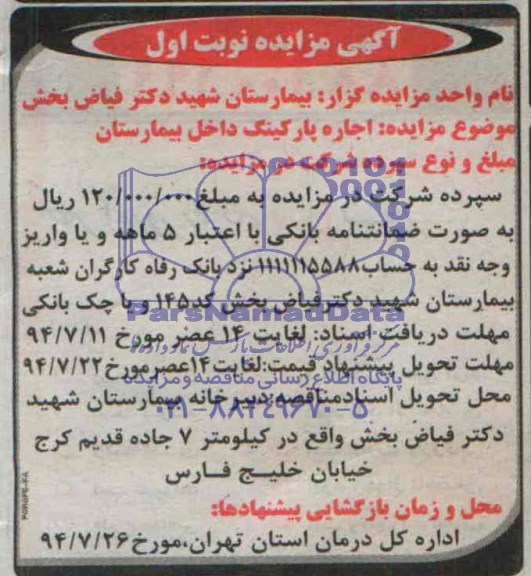 آگهی مزایده نوبت اول
نام واحد مزایده گزار: بیمارستان شهید دکتر فیاض بخش
موضوع مزایده: اجاره پارکینگ داخل بیمارستان
مبلغ و نوع سپرده شرکت در مزایده:
سپرده شرکت در مزایده به مبلغ ۱۲۰/۰۰۰/۰۰۰ ریال
به صورت ضمانتنامه بانکی با اعتبار ۵ ماهه و یا واریز
وجه نقد به حساب ۱۱۱۱۱۱۵۵۸۸ نزد بانک رفاه کارگران شعبه
بیمارستان شهید دکتر فیاض بخش کد ۱۴۵ و یا چک بانکی
ParsNamadData
مهلت دریافت اسناد: لغایت ۱۴ عصر مورخ ۹۴/۷/۱۱
مهلت تحویل پیشنهاد قیمت: لغایت ۱۴ عصر مورخ ۹۴/۷/۲۲
پایگاه اطلاع رسانی مناقصه و مزایده
محل تحویل اسناد مناقصه: دبیرخانه بیمارستان شهید
۰۲۱-۸۸۳۴۹۶۷۰-۵
دکتر فیاض بخش واقع در کیلومتر ۷ جاده قدیم کرج
خیابان خلیج فارس
محل و زمان بازگشایی پیشنهادها:
اداره کل درمان استان تهران، مورخ ۹۴/۷/۲۶